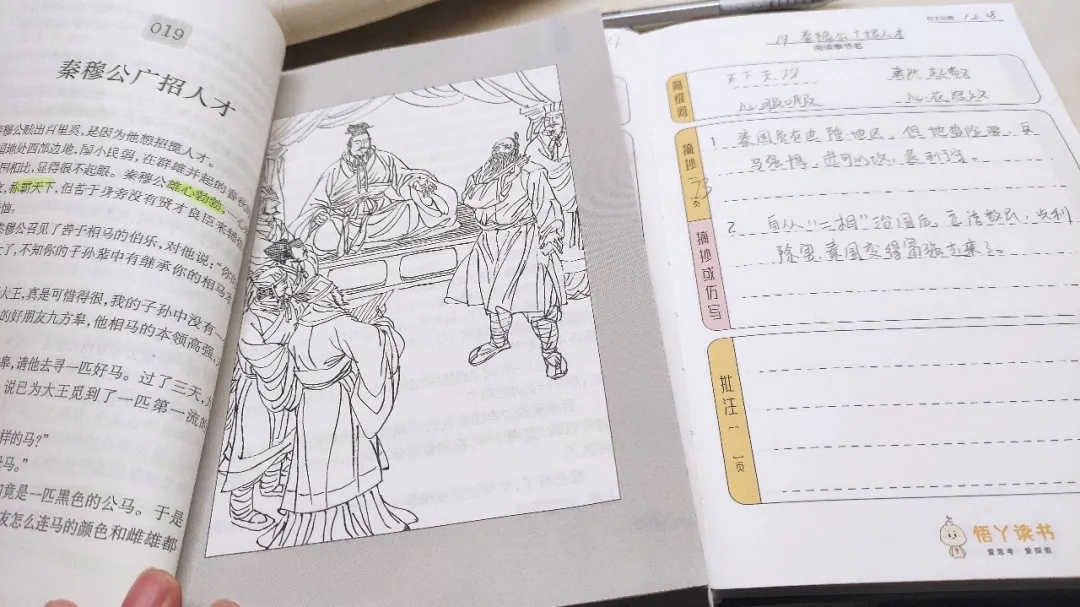 019
秦穆公广招人才
秦穆公赎出百里奚,是因为他想招揽人才。
国地处西部边地,国小民弱,在群雄并起的春秋
国相比,显得很不起眼。秦穆公雄心勃勃,一心
称霸天下,但苦于身旁没有贤才良臣来辅佐
秦穆公召见了善于相马的伯乐,对他说:“你
了,不知你的子孙辈中有继承你的相马
大王,真是可惜得很,我的子孙中没有一
的好朋友九方皋,他相马的本领高强,
皋,请他去寻一匹好马。过了三天,
说已为大王觅到了一匹第一流的
样的马?”
马。”
竟是一匹黑色的公马。于是
友怎么连马的颜色和雌雄都
19 秦穆公广招人才
阅读章节名
高级词
天下无双
心服口服
摘抄
页
1
秦国虽在边陲地区,但地势险要,兵
马强悍,进可以攻,退利守。
摘抄或仿写
2.
自从“二相”治国后,立法教民,兴利
除害,秦国变得富强起来了。
批注
页
悟丫读书
爱思考 爱探索